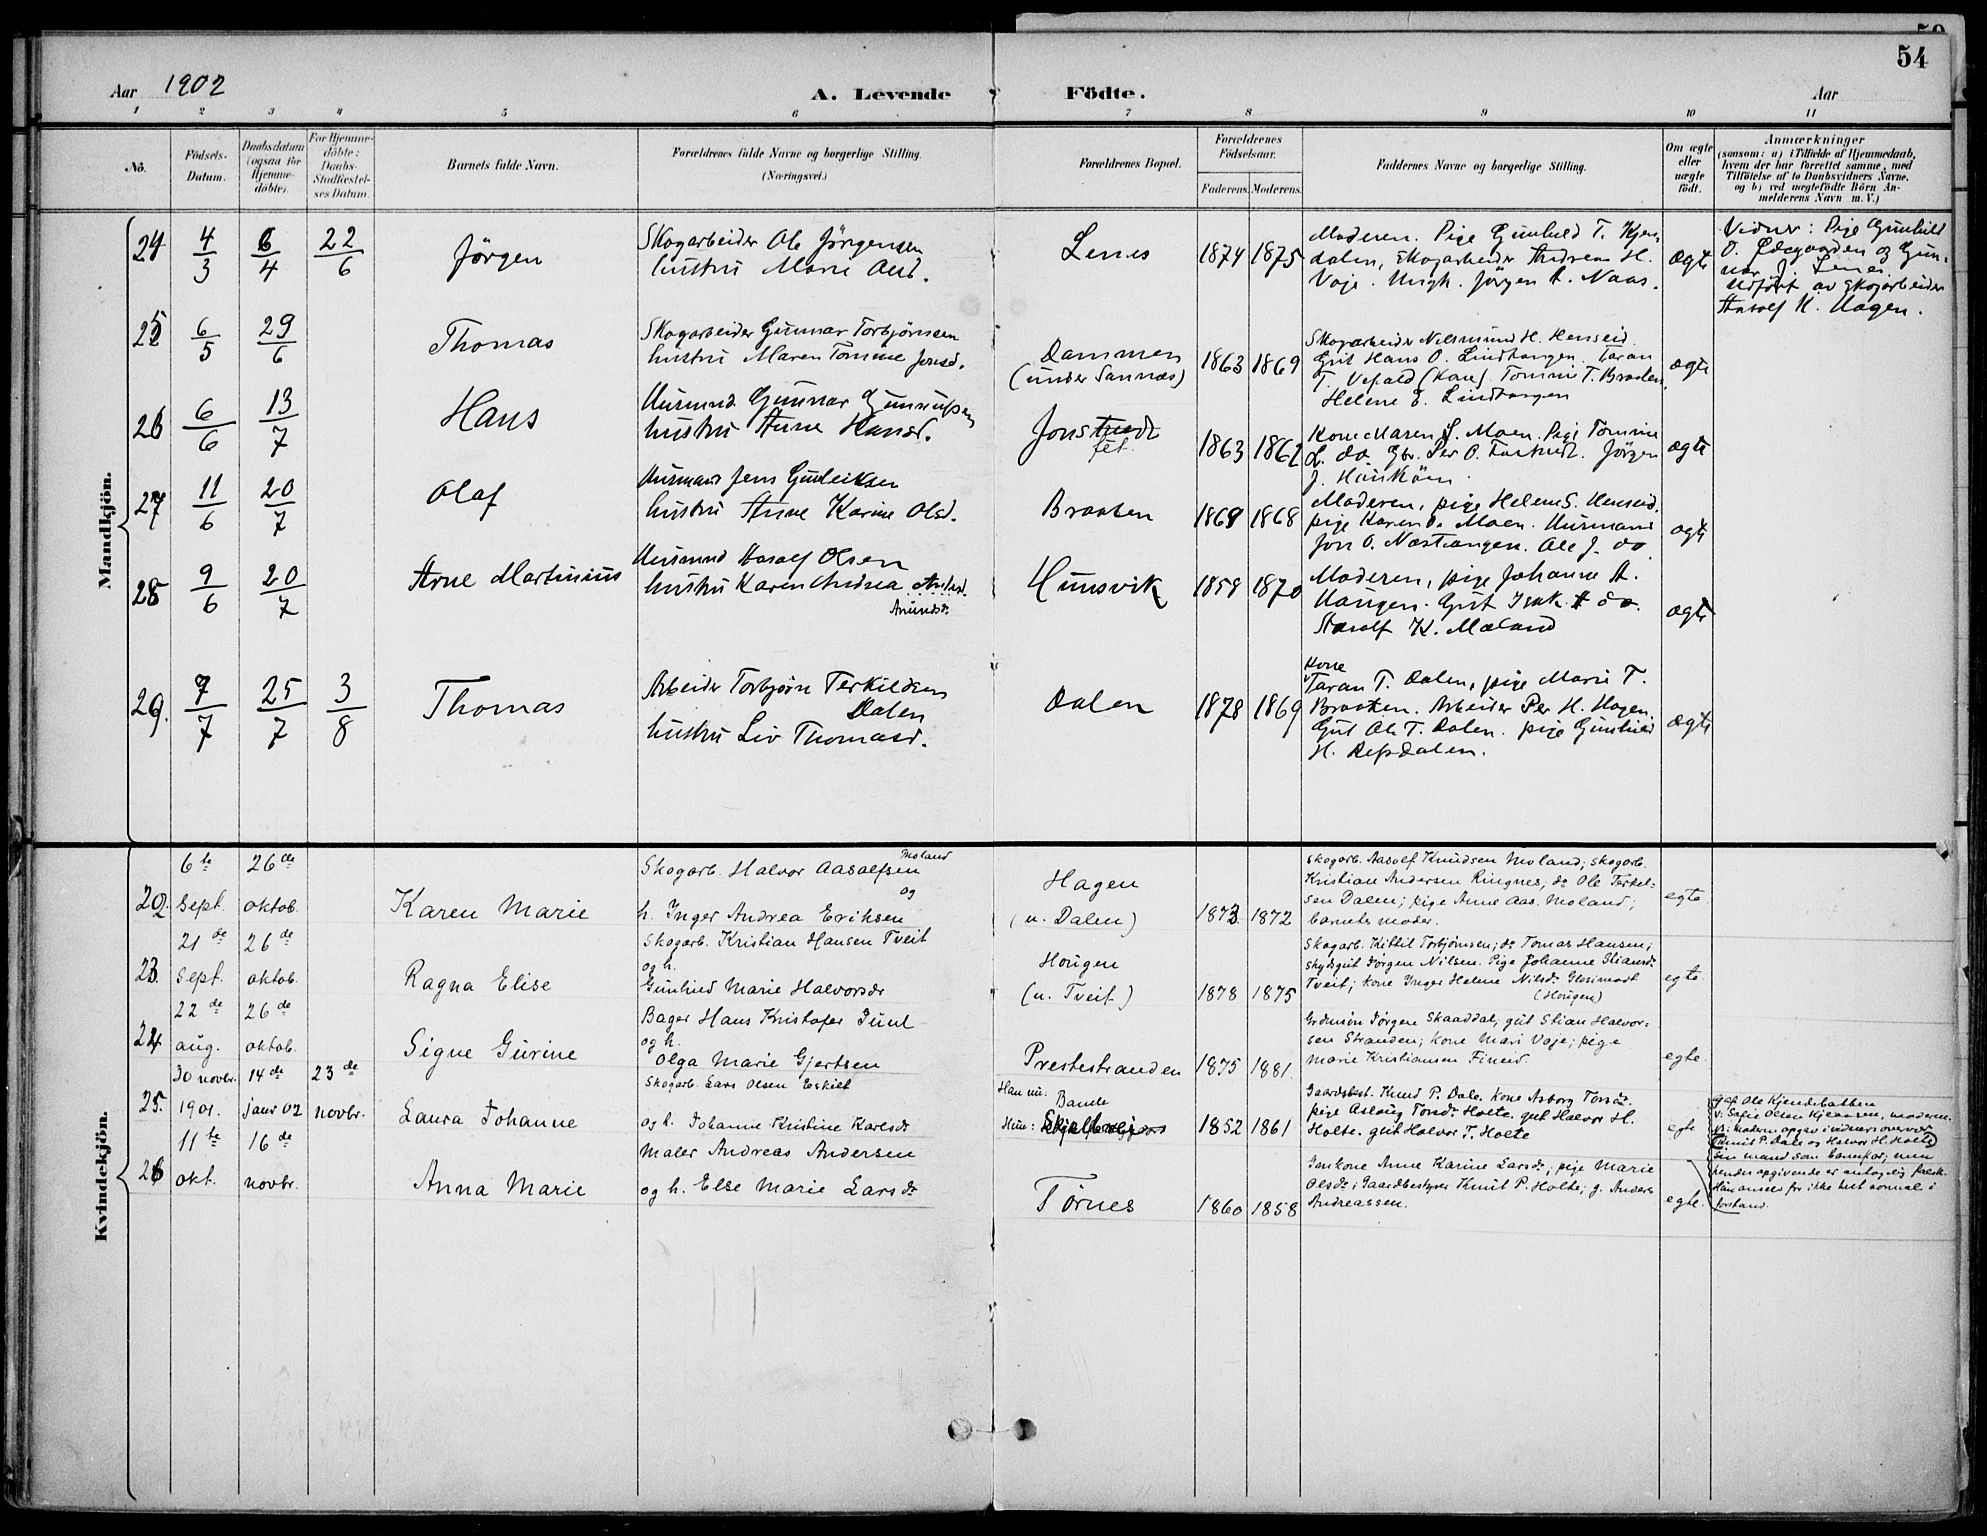 54
Aar 1902
A. Levende Födte.
Aar
1 2 3 4 5 6 7 8 9 10 11
No.
Födsels-Datum.
Daabsdatum (ogsaa for Hjemme-döbte).
For Hjemme-döbte: Daabs-Stadfæstel-ses Datum.
Barnets fulde Navn.
Forældrenes fulde Navne og borgerlige Stilling.
(Næringsvei.)
Forældrenes Bopæl.
Forældrenes Födselsaar.
Faderens. Moderens.
Faddernes Navne og borgerlige Stilling.
Om ægte eller uægte födt.
Anmærkninger
(saasom: a) i Tilfælde af Hjemmedaab,
hvem der har forrettet samme, med
Tilföielse af to Daabsvidners Navne.
og b) ved uægtefödte Börn An-
melderens Navn m. V.)
Mandkjön.
24 4/3 6/4 22/6 Jörgen
Skogarbeider Ole Jörgensen
hustru Marie
Lenes 1874 1875
Moderen. Pige Gunhild T. Kjen-
dalen, Skogarbeider Andreas H.
Voje. Ungk. Jörgen A. Naas.
ægte
Vidner: Pige Gunhild
O. Ödegaarden og Gun-
nar J. Lenes.
Udfört av Skogarbeider
Aasolf K. Hagen.
25 6/5 29/6 Thomas
Skogarbeider Gunnar Torbjörnsen
hustru Maren Tomine Jonsd.
Dammen
(under Sannæs)
1863 1869
Skogarbeider Nilsmund H. Henseid.
Gut Hans O. Lindtangen. Taran
T. Vefald (Kone). Tomine T. Braaten.
Helene E. Lindtangen
ægte
26 6/6 13/7 Hans
Husmand Gunnar
hustru Anne Hansd.
1863 1862
Kone Maren S. Moen. Pige Tomine
L. do Gbr. Per O. Jörgen
J.
ægte
27 11/6 20/7 Olaf
Husmand Jens Gunleiksen
hustru Anne Karine Olsd.
Braaten 1869 1868
Moderen, pige Helene S. Henseid.
pige Karen O. Moen. Husmand
Jon O. Næstangen. Ole J. do
ægte
28 9/6 20/7 Arne Martinius
Husmand Aasolf Olsen
hustru Karen Andrea
Amundsdr.
Hunsvik 1858 1870
Moderen, pige Johanne A.
Haugen. Gut Isak A do.
Aasolf K. Mæland
ægte
29. 7/7 25/7 3/8 Thomas
Arbeider Torbjörn Terkildsen
Dalen
hustru Liv Thomasd.
Dalen 1878 1869
Kone
Taran T. Dalen, pige Marie T.
Braaten. Arbeider Per H. Hagen
Gut Ole T. Dalen. pige Gunhild
H. Refsdalen.
ægte
Kvindekjön.
22. 6te Sept. 26de oktob. Karen Marie
Skogarb. Halvor Aasolfsen Moland
og
h. Inger Andrea Eriksen
Hagen
(u. Dalen)
1873 1872
Skogarb. Aasolf Knudsen Moland; skogarb.
Kristian Andersen Ringnes, do Ole Terkel-
sen Dalen; pige Anne Aas. Moland;
barnets moder.
egte
23. 21de Sept. 26de oktob. Ragna Elise
Skogarb. Kristian Hansen Tveit
og h.
Gunhild Marie Halvorsdr
Hougen
(u. Tveit)
1878 1875
Skogarb. Kittil Torbjörnsen; do Tomas Hansen;
skydsgut Jörgen Nilsen. Pige Johanne Stiansdr
Tveit; kone Inger Helene Nilsdr
(Hougen)
egte
24. 22de aug. 26de oktob. Signe Gurine
Bager Hans Kristofer Juul
og h.
Olga Marie Gjertsen
Prestestranden 1875 1881
Jörgen Skaaddal, gut Stian Halvor-
sen Stranden; kone Mari Voje; pige
Marie Kristiansen Fineid
egte.
25. 30 novbr. 1901. 14de janr 02 23de novbr. Laura Johanne
Skogarb. Lars Olsen Eskilt
og h. Johanne Kristine Karlsdr
Han nu. Bamle
Hun:
1852 1861
Gaardsbest. Knud P. Dale. Kone Asborg
pige Aslaug Torsdr Holte. gut Halvor H.
Holte. gut Halvor T. Holte
egte
gaf Ole Kjendebakken
v. Sofie Olsen
moderen opgav i vidners overvær
(Knut P. Dale og Halvor H. Holte)
sin mand som barnefar; men
hendes opgivende er antagelig falsk.
Hun ansees for ikke helt normal i
forstand.
26 11te okt. 16de novbr. Anna Marie
Maler Andreas Andersen
og h. Else Marie Larsdr
Törnes 1860 1858
Anne Karine Larsdr; pige Marie
Olsdr; Gaardbestyrer Knut P. Holte; g. Anders
Andreassen.
egte.